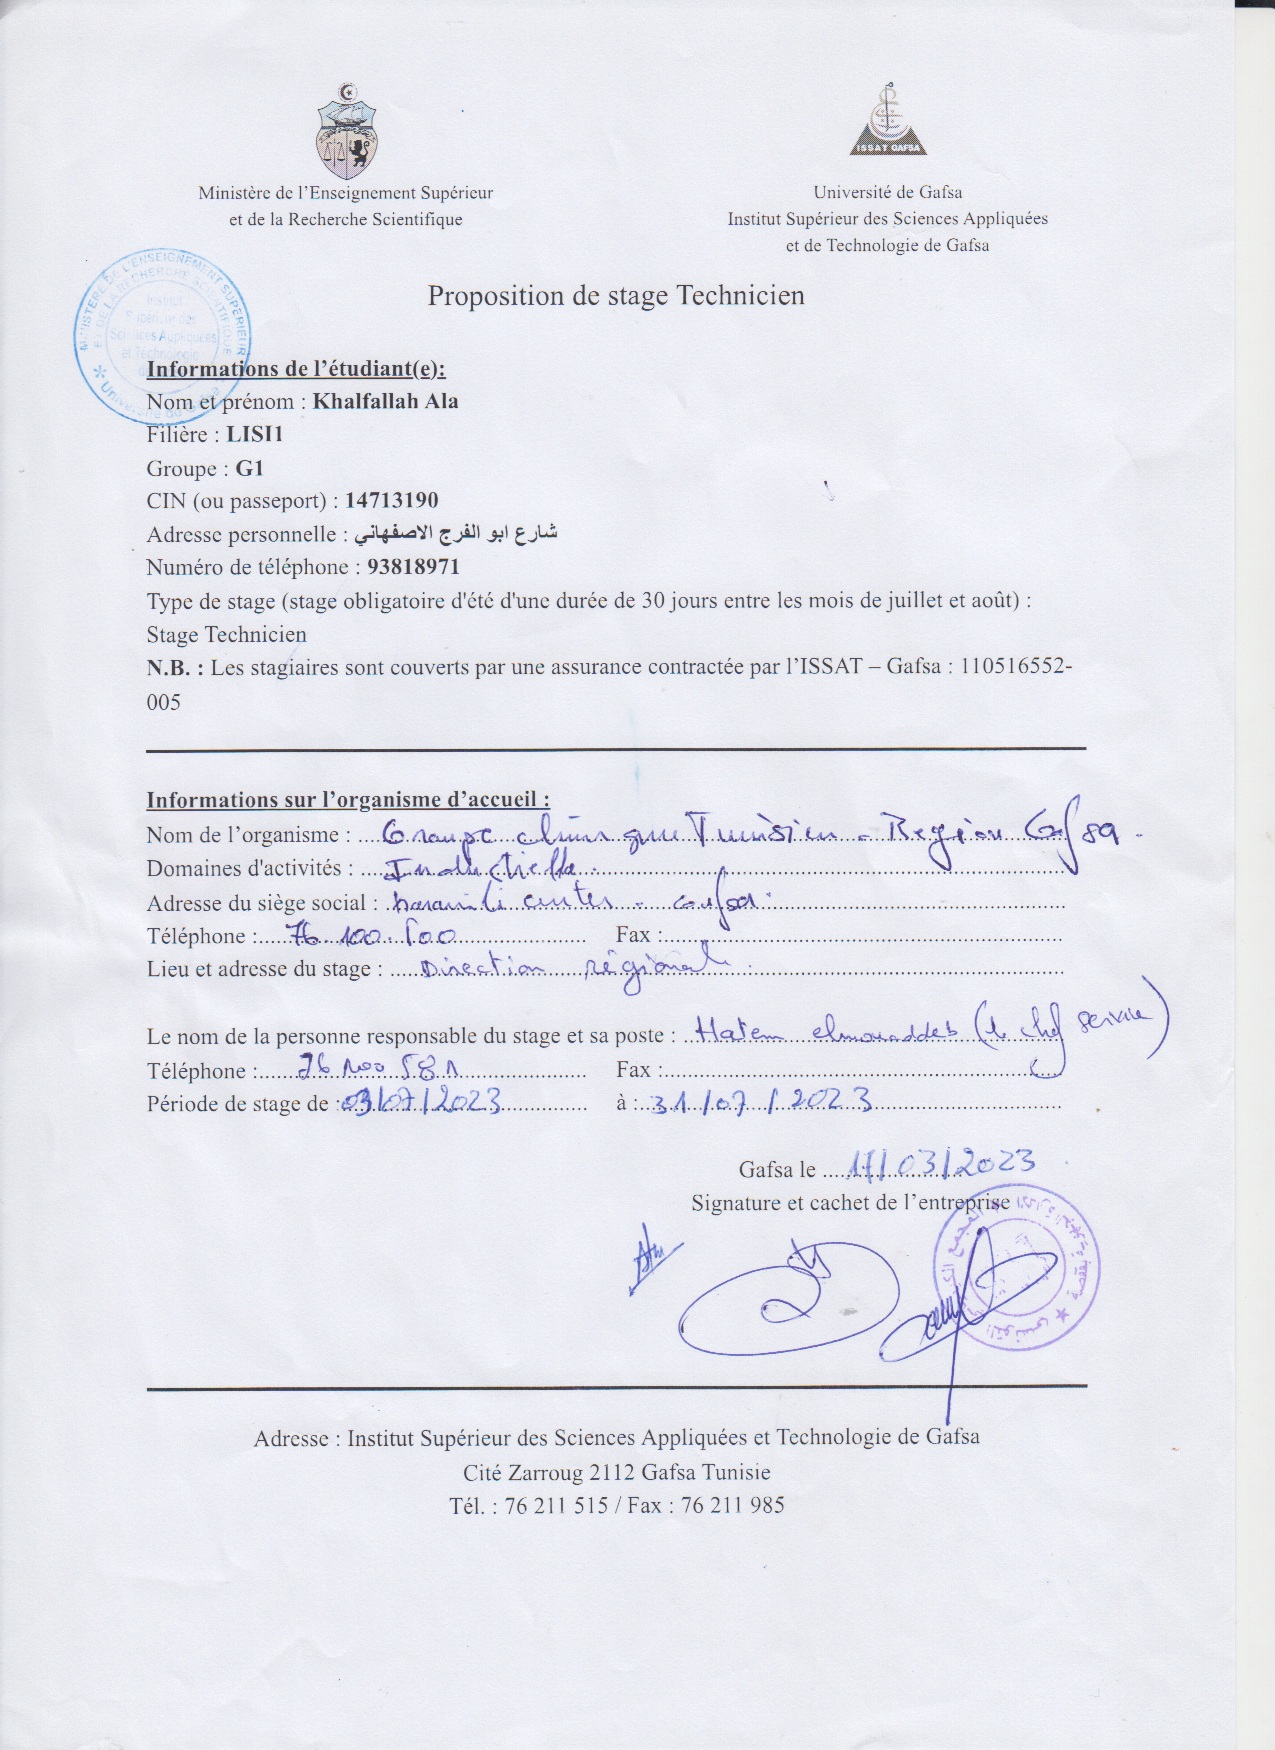 ISSAT GAFSA
Ministère de l'Enseignement Supérieur
et de la Recherche Scientifique
Université de Gafsa
Institut Supérieur des Sciences Appliquées
et de Technologie de Gafsa
MINISTERE DE L'ENSEIGNEMENT SUPERIEUR
ET DE LA RECHERCHE SCIENTIFIQUE
Institut
Sciences Appliquées
et Technologie
Proposition de stage Technicien
Informations de l'étudiant(e):
Nom et prénom : Khalfallah Ala
Filière : LISI1
Groupe : G1
CIN (ou passeport) : 14713190
Adresse personnelle : شارع ابو الفرج الاصفهاني
Numéro de téléphone : 93818971
Type de stage (stage obligatoire d'été d'une durée de 30 jours entre les mois de juillet et août) :
Stage Technicien
N.B. : Les stagiaires sont couverts par une assurance contractée par l'ISSAT – Gafsa : 110516552-
005
Informations sur l'organisme d'accueil :
Nom de l'organisme : Groupe chimique Tunisien - Region Gafsa
Domaines d'activités : Industrielle
Adresse du siège social : center - Gafsa
Téléphone : 76 100 500 Fax :
Lieu et adresse du stage : Direction régional
Le nom de la personne responsable du stage et sa poste : Hatem elmouaddeb (le chef service)
Téléphone : 76 100 581 Fax :
Période de stage de : 03/07/2023 à : 31/07/2023
Gafsa le 17/03/2023
Signature et cachet de l'entreprise
Adresse : Institut Supérieur des Sciences Appliquées et Technologie de Gafsa
Cité Zarroug 2112 Gafsa Tunisie
Tél. : 76 211 515 / Fax : 76 211 985